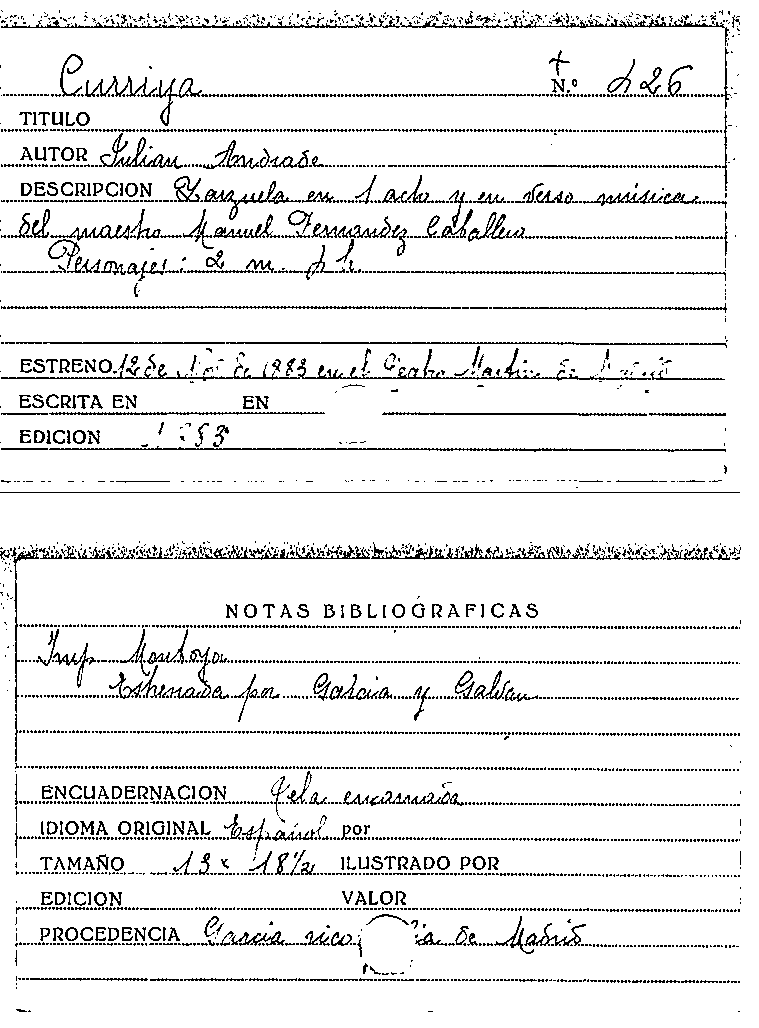 Curriya
N.º 426
TITULO
AUTOR Julian Andrade
DESCRIPCION Zarzuela en 1 acto y en verso música
del maestro Manuel Fernandez Caballero
Personajes: 2 m. 4 h.
ESTRENO 12 de de 1883 en el Teatro Martin de
ESCRITA EN EN
EDICION 1883
NOTAS BIBLIOGRAFICAS
Imp Montoya
Estrenada por Garcia y Galvan
ENCUADERNACION Tela encarnada
IDIOMA ORIGINAL Español por
TAMAÑO 13 x 18½ ILUSTRADO POR
EDICION VALOR
PROCEDENCIA Garcia rico de Madrid